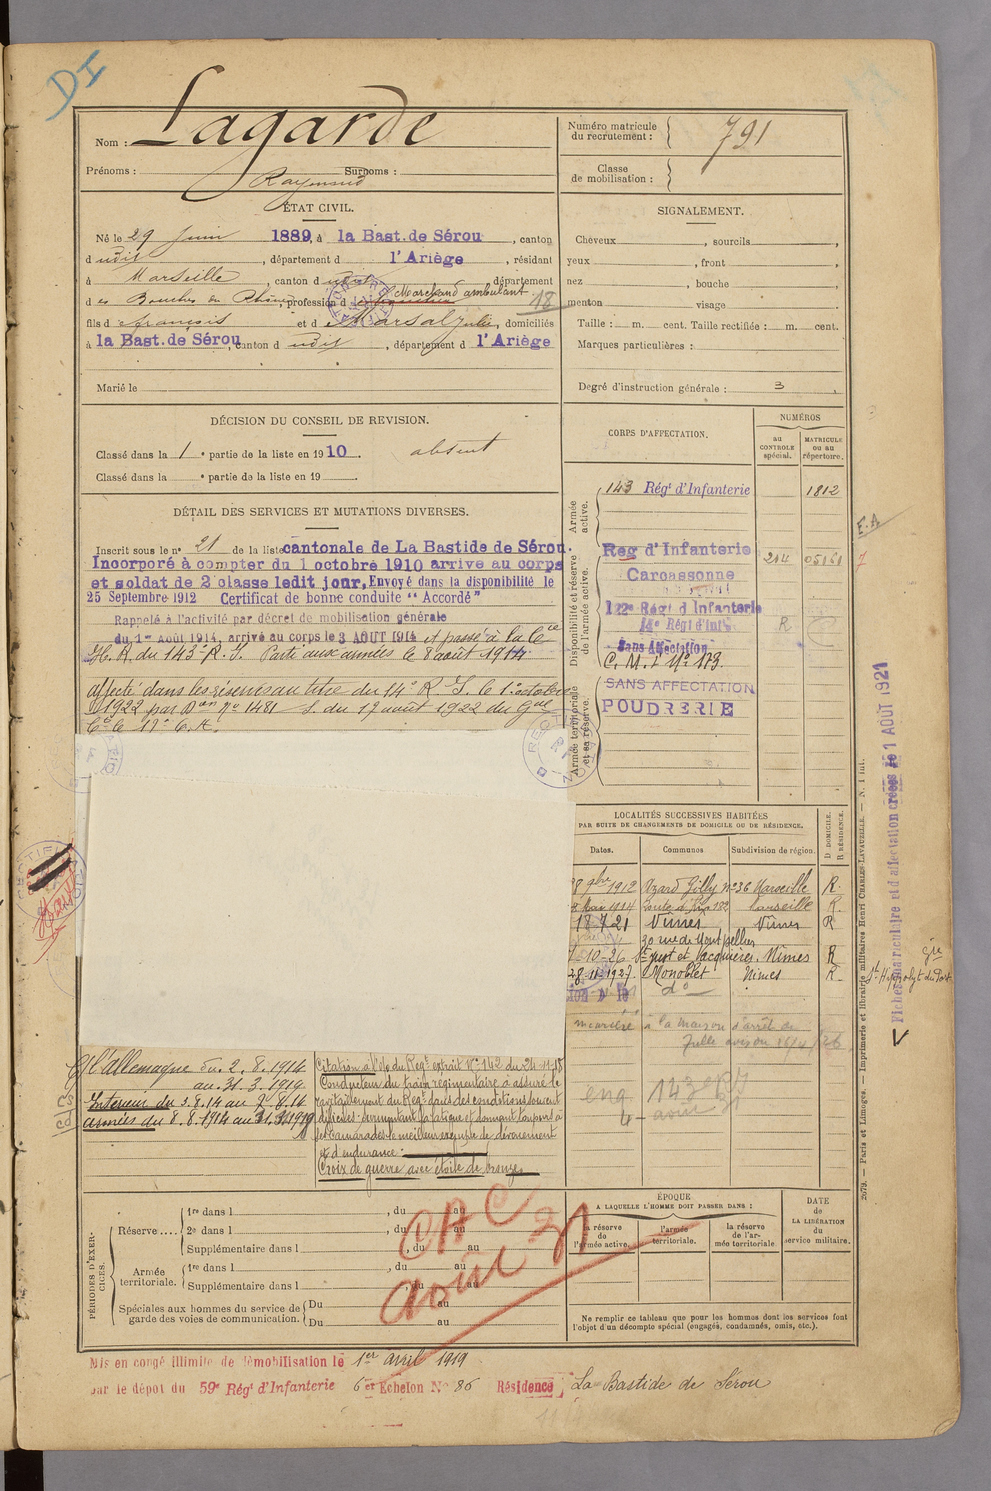 DI
Nom : Lagarde
Prénoms : Raymond Surnoms :
Numéro matricule du recrutement : 791
Classe de mobilisation :
ÉTAT CIVIL.
Né le 29 Juin 1889, à la Bast. de Sérou, canton
d udit, département d l'Ariège, résidant
à Marseille, canton d udit, département
d es Bouches du Rhône, profession d Marchand ambulant 18
fils d e françois et d e Marsal Julie, domiciliés
à la Bast. de Sérou, canton d udit, département d l'Ariège
Marié le
SIGNALEMENT.
Cheveux, sourcils
yeux, front
nez, bouche
menton visage
Taille : m. cent. Taille rectifiée : m. cent.
Marques particulières :
Degré d'instruction générale : 3
DÉCISION DU CONSEIL DE REVISION.
Classé dans la 1e partie de la liste en 1910. absent
Classé dans la e partie de la liste en 19
DÉTAIL DES SERVICES ET MUTATIONS DIVERSES.
Inscrit sous le n° 21 de la liste cantonale de La Bastide de Sérou.
Incorporé à compter du 1 octobre 1910 arrivé au corps
et soldat de 2e classe ledit jour. Envoyé dans la disponibilité le
25 Septembre 1912 Certificat de bonne conduite "Accordé"
Rappelé à l'activité par décret de mobilisation générale
du 1er Août 1914, arrivé au corps le 3 AOUT 1914 et passé à la Cie
H. R. du 143e R. I. Parti aux armées le 8 août 1914
affecté dans les réserves au titre du 14e R. I. le 1er octobre
1922 par Don No 1481 S. du 17 août 1922 du Gal
Ct le 17e C. A.
CORPS D'AFFECTATION.
NUMÉROS
au CONTROLE spécial.
MATRICULE ou au répertoire.
Armée active.
143 Régt d'Infanterie 1812
Disponibilité et réserve de l'armée active.
Reg d'Infanterie 214
Carcassonne
122e Régt d'Infanterie
14e Régt d'Inf. R
Sans Affectation
C. M. I No 173
Armée territoriale et sa réserve.
SANS AFFECTATION
POUDRERIE
E.A
LOCALITÉS SUCCESSIVES HABITÉES
PAR SUITE DE CHANGEMENTS DE DOMICILE OU DE RÉSIDENCE.
Dates. Communes Subdivision de région. D. DOMICILE. R. RÉSIDENCE.
8 9bre 1912 Azard Gilly no 36 Marseille R.
Mai 1914 Marseille R.
18 7 21 Nîmes Nîmes R
30 rue de Montpellier
10-26 St just et Vacquières. Nîmes R
28-11-1927 Monoblet Nimes R.
do
à la maison d'arrêt de
St Hippolyte du Fort
eng 143e RI
août 31
Fiches matriculaire et d'affectation créées le 1 AOUT 1921
2079. — Paris et Limoges. — Imprimerie et librairie militaires Henri CHARLES-LAVAUZELLE. — N. 1 int.
C/ l'Allemagne du 2. 8. 1914
au 31. 3. 1919.
Interieur du 3. 8. 14 au 7. 8. 14
armées du 8. 8. 1914 au 31. 3. 1919
Citation à l'o/ du Regt extrait No 142 du 24-11-18
Conducteur du train régimentaire a assuré le
ravitaillement du Regt dans des conditions souvent
difficiles surmontant sa fatigue et donnant toujours à
ses camarades le meilleur exemple de dévouement
et d'endurance.
Croix de guerre avec étoile de bronze.
PÉRIODES D'EXERCICES.
Réserve.... 1re dans l , du au
2e dans l , du au
Supplémentaire dans l , du au
Armée territoriale. 1re dans l , du au
Supplémentaire dans l , du au
Spéciales aux hommes du service de garde des voies de communication. Du au
Du au
CAC
août 31
ÉPOQUE
A LAQUELLE L'HOMME DOIT PASSER DANS :
la réserve de l'armée active.
l'armée territoriale.
la réserve de l'armée territoriale.
DATE de LA LIBÉRATION du service militaire.
Ne remplir ce tableau que pour les hommes dont les services font
l'objet d'un décompte spécial (engagés, condamnés, omis, etc.).
Mis en congé illimité de démobilisation le 1er avril 1919
par le dépôt du 59e Régt d'Infanterie 6e Echelon No 86 Résidence La Bastide de Sérou